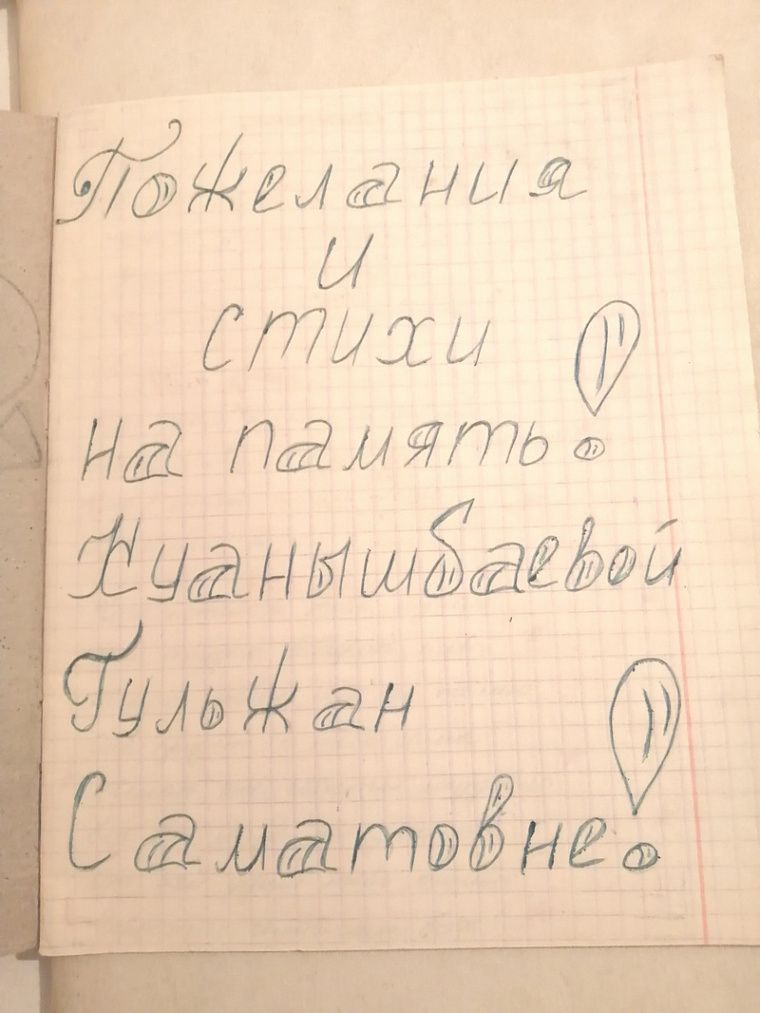 Пожелания
и
стихи
на память!
Куанышбаевой
Гульжан
Саматовне!